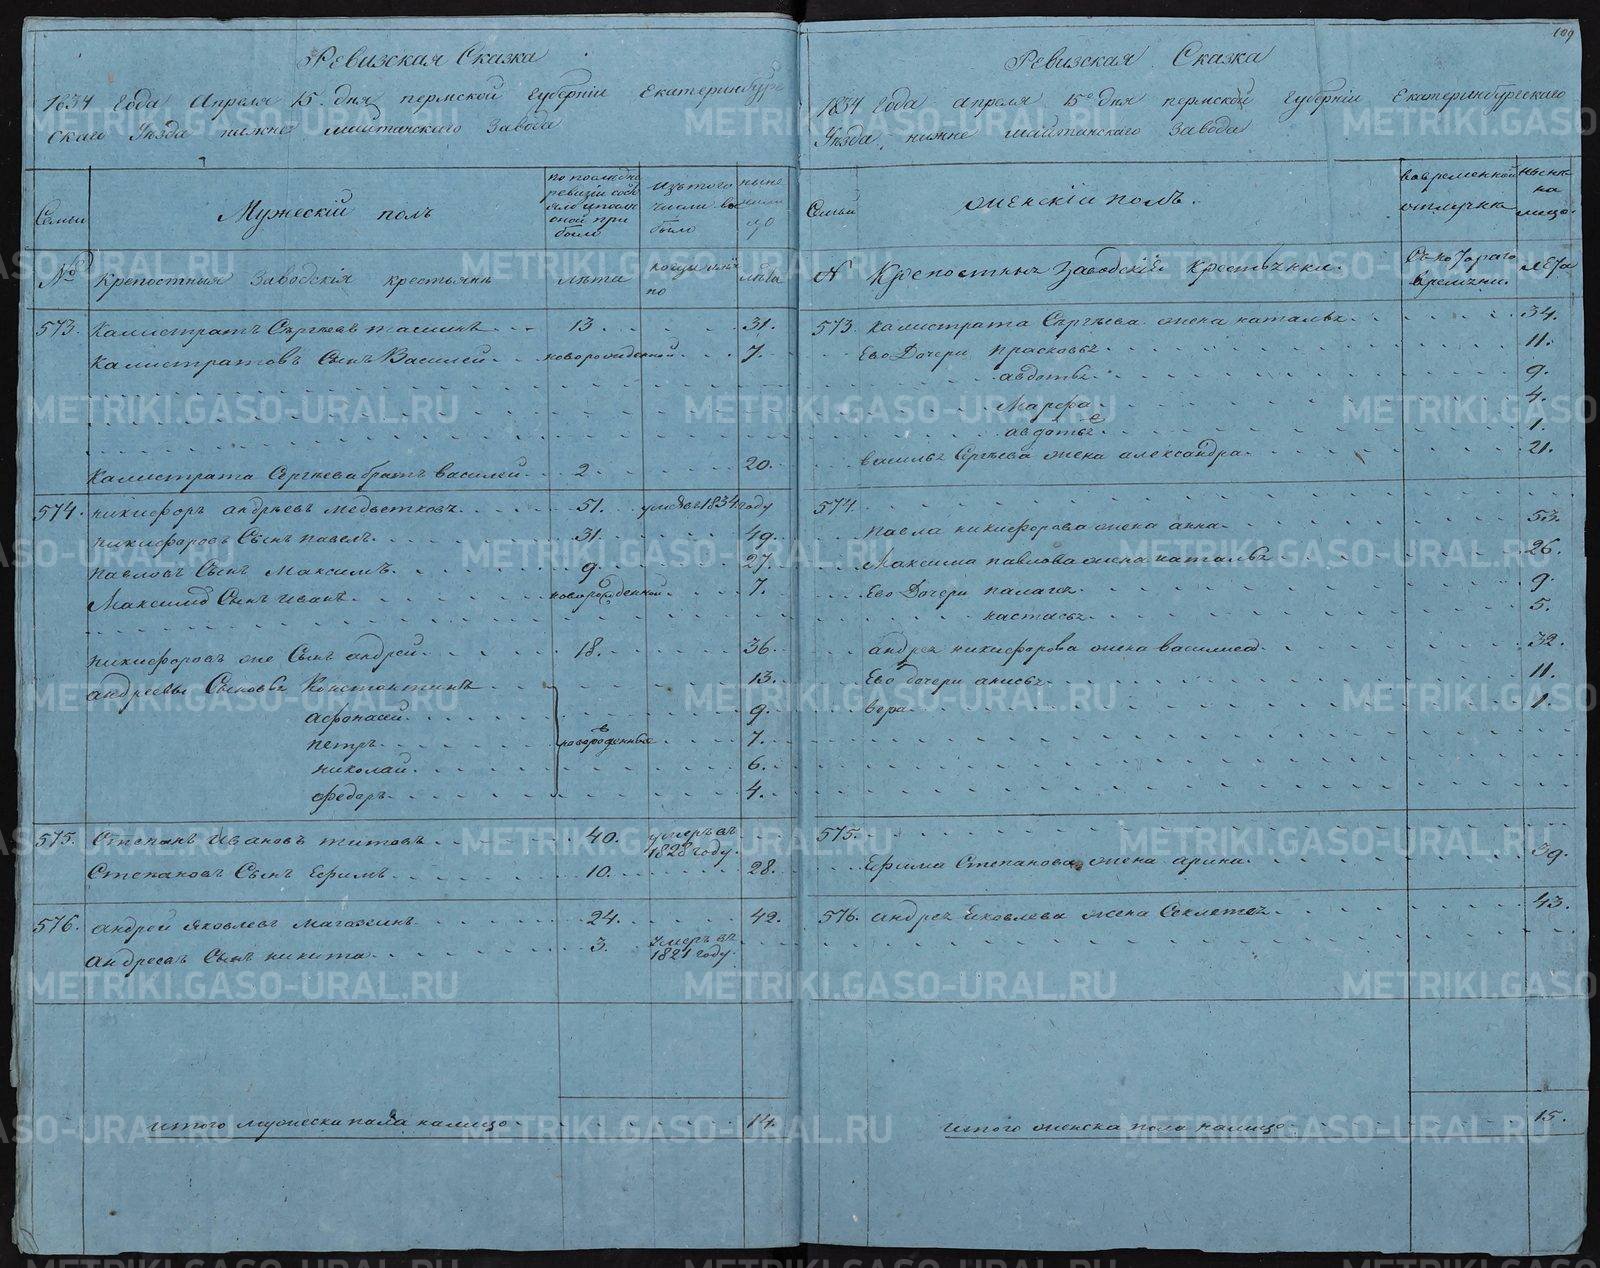 109
Ревизская Сказка
1834 Года Апреля 15 дня пермской Губерніи Екатеринбург
скаго Уезда нижне Шайтанского Завода
Семьи
Мужескій полъ
по последней ревизіи состояло и после оной прибыло
Изъ того числа выбыло
ныне на лицо
№
Крепостныя Заводскія крестьяне
лета
когда именно
лета
573. Калистратъ Сергеевъ 13. 31.
Калистратовъ Сынъ Василей новорожденной 7.
Калистрата Сергеева братъ василей 2. 20.
574. никифоръ андреевъ медветковъ 51. умре въ 1834 году
никифоровъ Сынъ павелъ 31. 49.
павловъ Сынъ Максимъ 9. 27.
Максимовъ Сынъ иванъ новорожденной 7.
никифоровъ же Сынъ андрей 18. 36.
андреевы Сыновья Констонтинъ 13.
афонасей 9.
петръ новорожденныя 7.
николай 6.
федоръ 4.
575. Степанъ Ивановъ титовъ 40. умеръ въ 1828 году.
Степановъ Сынъ Ефимъ 10. 28.
576. андрей Яковлевъ магозинъ 24. 42.
андреевъ Сынъ никита 3. Умеръ въ 1821 году.
итого мужеска пола налицо 14.
Ревизская Сказка
1834 Года апреля 15го дня пермской Губерніи Екатеринбургскаго
Уезда, нижне шайтанскаго Завода
Семьи
женскій полъ.
во временной отлучке
ныне на лицо.
№ Крепостныя Заводскій Крестьянки.
Съ котораго времени.
лета
573. Калистрата Сергеева жена наталья 34.
Ево Дочери прасковья 11.
авдотья 9.
Марфа 4.
авдотья 1.
василья Сергеева жена александра 21.
574.
павла никифорова жена анна 53.
Максима павлова жена наталья 26.
Ево Дочери палагея 9.
настасья 5.
андрея никифорова жена василиса 32.
Ево дочери анисья 11.
вера 1.
575.
Ефима Степанова жена арина 39.
576. андрея Яковлева жена Секлетея 43.
итого женска пола налицо 15.
METRIKI.GASO-URAL.RU